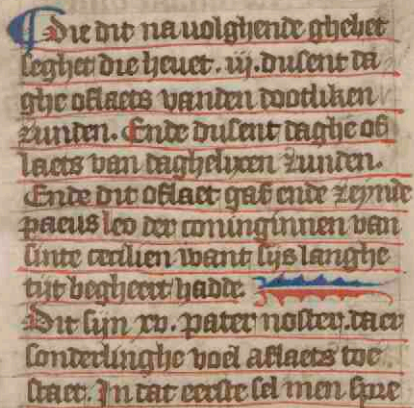 Die dit na uolghende ghebet
seghet die heuet. iij. dusent da
ghe oflaets vanden dootliken
zunden. Ende dusent daghe of
laets van daghelixen zunden.
Ende dit oflaet gaf ende zeynde
paeus leo der coninginnen van
sinte cecilien want sijs langhe
tijt begheert hadde.
Dit sijn xv. pater noster. daer
sonderlinghe voel aflaets toe
staet. In dat eerste sel men spre